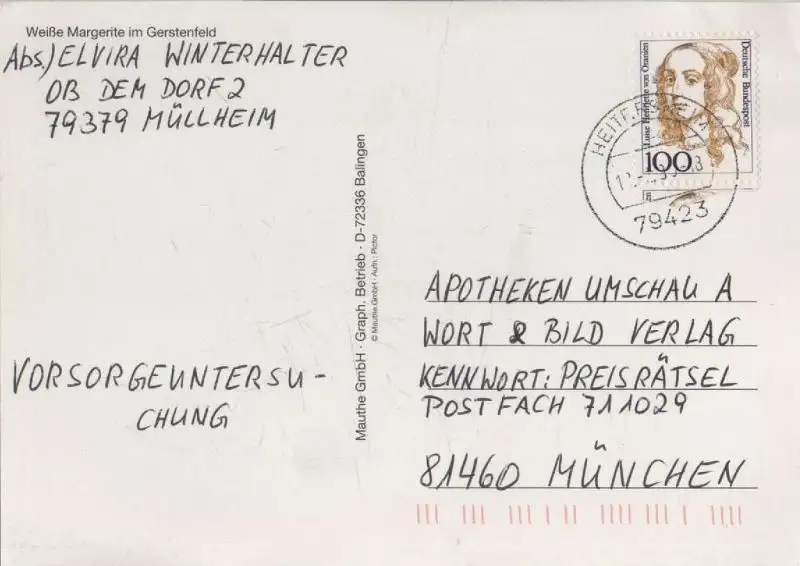 Weiße Margerite im Gerstenfeld
Abs.) ELVIRA WINTERHALTER
OB DEM DORF 2
79379 MÜLLHEIM
VORSORGEUNTERSU-
CHUNG
Mauthe GmbH · Graph. Betrieb · D-72336 Balingen
© Mauthe GmbH · Aufn.: Pictor
Luise Henriette von Oranien
Deutsche Bundespost
100
HEITERSHEIM
79423
APOTHEKEN UMSCHAU A
WORT & BILD VERLAG
KENNWORT: PREISRÄTSEL
POSTFACH 711029
81460 MÜNCHEN